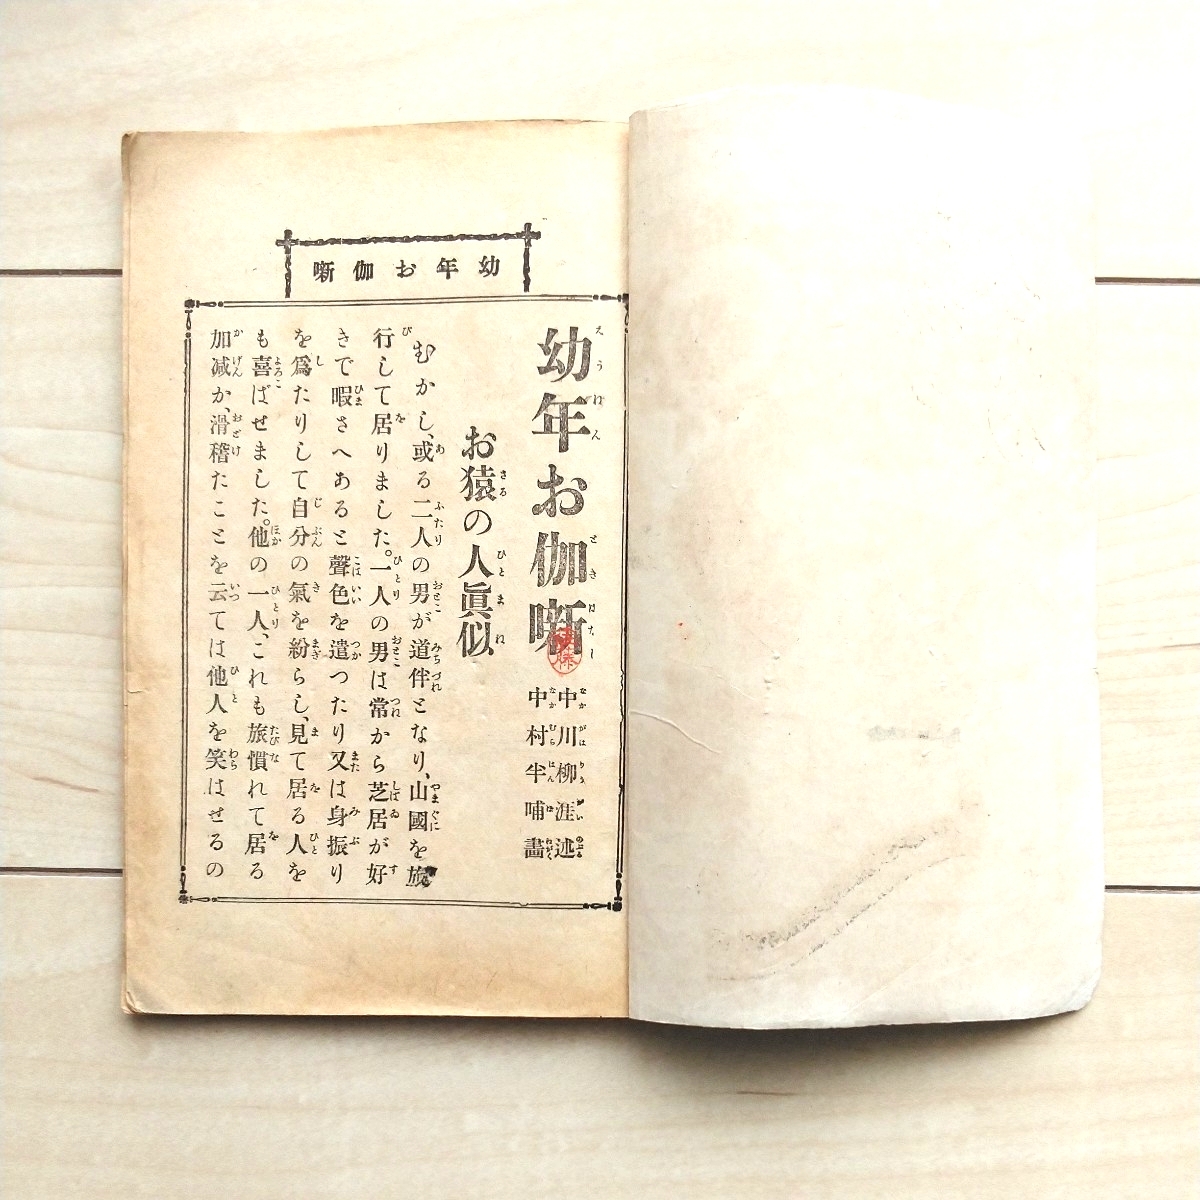 幼年お伽噺
幼年お伽噺
中川柳涯述
中村半哺畫
お猿の人眞似
むかし、或る二人の男が道伴となり、山國を旅
行して居りました。一人の男は常から芝居が好
きで暇さへあると聲色を遣つたり又は身振り
を爲たりして自分の氣を紛らし、見て居る人を
も喜ばせました。他の一人、これも旅慣れて居る
加减か、滑稽たことを云ては他人を笑はせるの